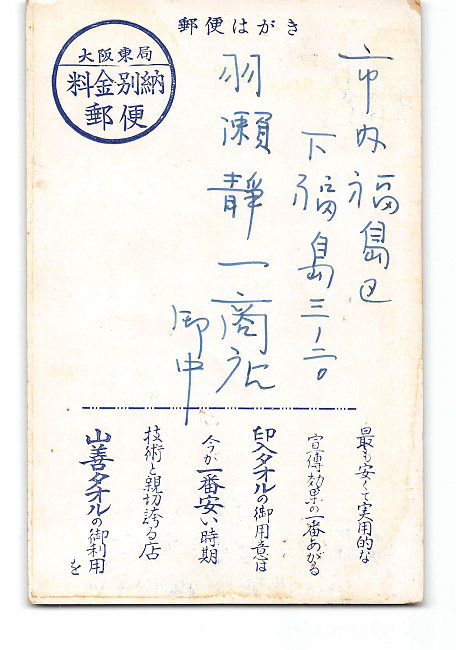 郵便はがき
大阪東局
料金別納
郵便
市内福島区
下福島三ノ二〇
羽瀬静一商店
御中
最も安くて実用的な
宣傳効果の一番あがる
印入タオルの御用意は
今が一番安い時期
技術と親切誇る店
山善タオルの御利用を